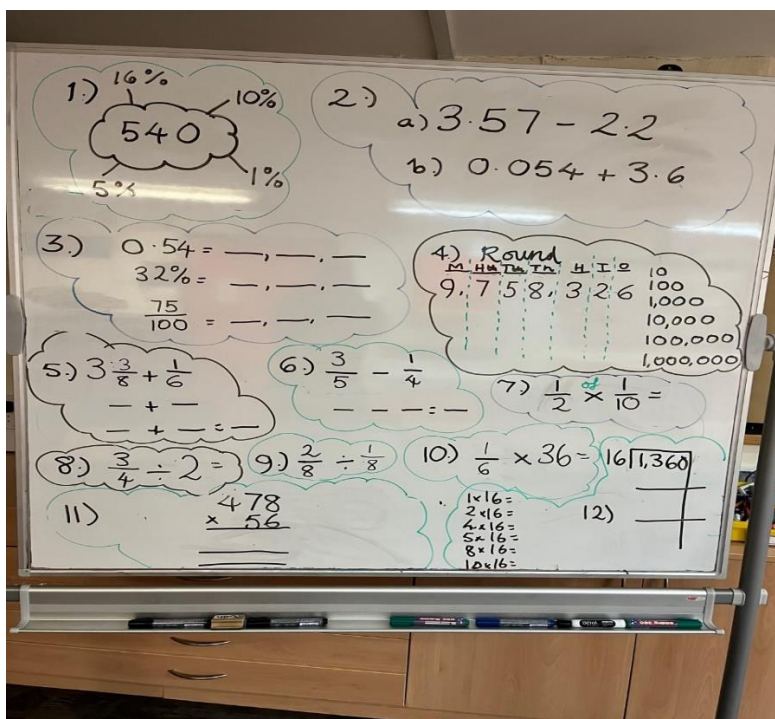 1.) 16% 10%
540
5% 1%
2.)
a) 3.57 - 2.2
b.) 0.054 + 3.6
3.) 0.54 = __, __, __
32% = __, __, __
75/100 = __, __, __
4.) Round
M HTh TTh Th H T O
9, 7 5 8, 3 2 6
10
100
1,000
10,000
100,000
1,000,000
5.) 3 3/8 + 1/6
__ + __
__ + __ = __
6.) 3/5 - 1/4
__ - __ = __
7.) 1/2 of × 1/10 =
8.) 3/4 ÷ 2 =
9.) 2/8 ÷ 1/8
10.) 1/6 × 36 =
11)
478
× 56
1×16=
2×16=
4×16=
5×16=
8×16=
10×16=
12)
16 1,360